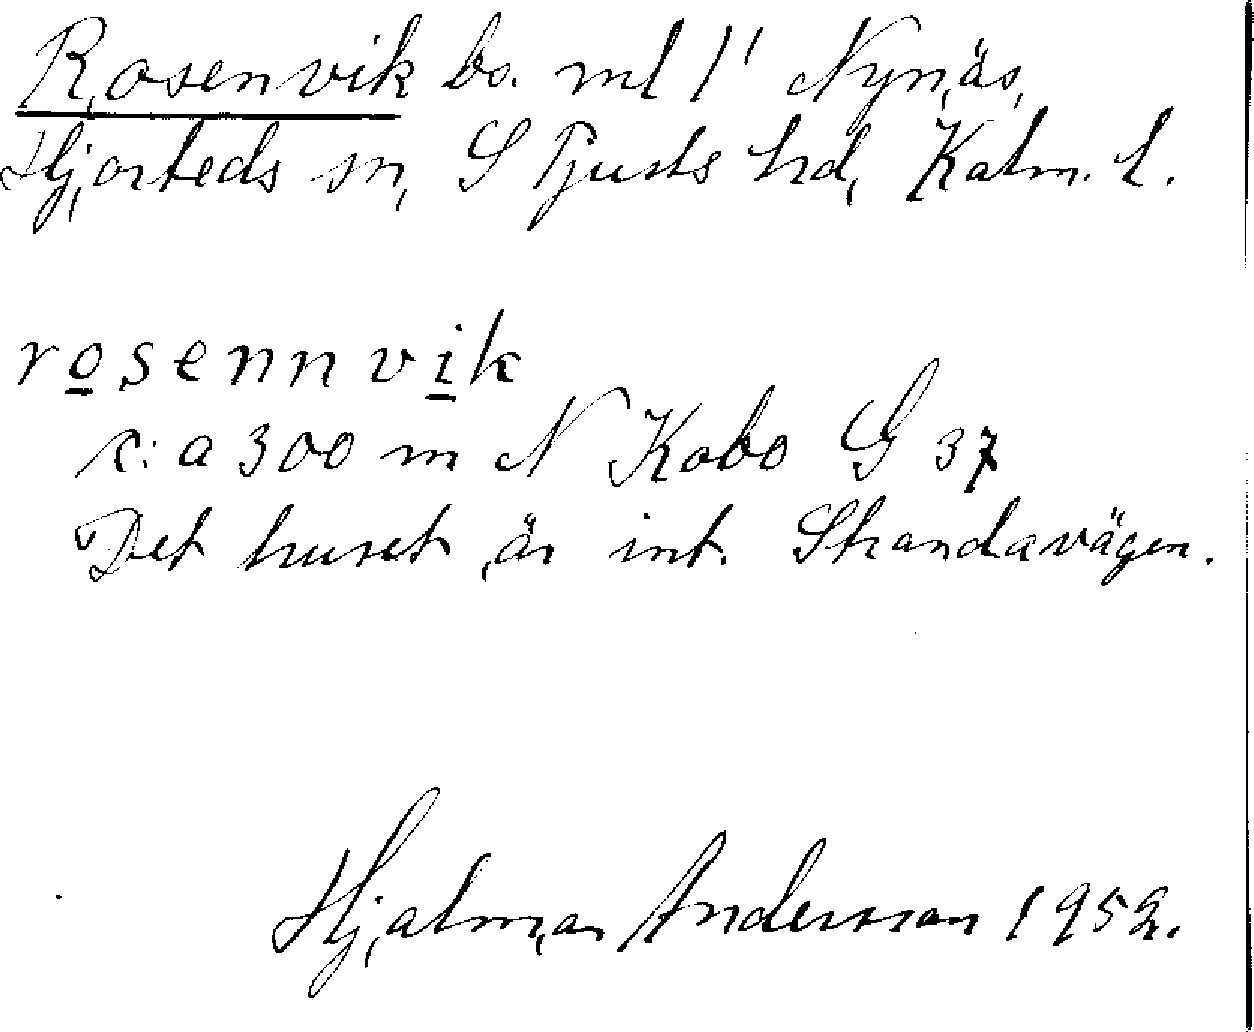 Rosenvik bs. ml 1' Nynäs,
Hjorteds sn, S Tjusts hd, Kalm. l.
rosennvik
c:a 300 m N Kobo G 37
Det huset är int. Strandavägen.
Hjalmar Andersson 1952.